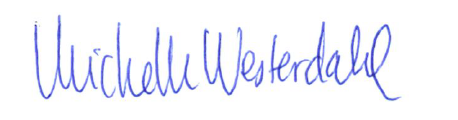 Michelle Westerdahl